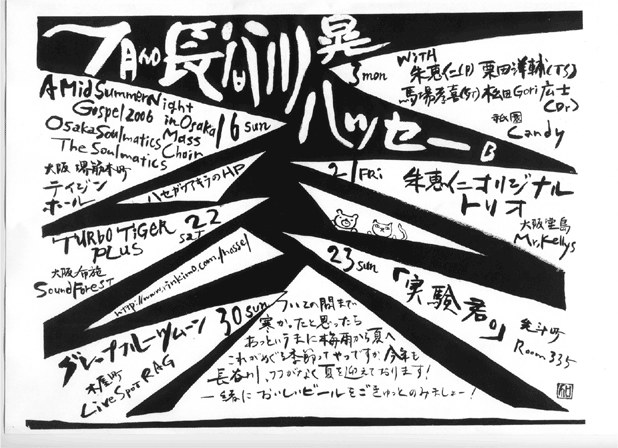 7月の長谷川晃
ハッセー
B
3 mon
WiTH
朱恵仁(P) 栗田洋輔(TS)
馬場孝喜(Gt) 松田Gori広士
(Dr)
祇園
Candy
A MidSummer Night
Gospel 2006 in Osaka
Osaka Soulmatics Mass
Choir
The Soulmatics
16 sun
大阪 堺筋本町
テイジン
ホール
ハセガワアキラのHP
http://www.rinkimo.com/hassel
21 FRi
朱恵仁オリジナル
トリオ
大阪堂島
Mr.Kellys
TURBO TiGER
PLUS
22
SaT
大阪布施
Sound ForesT
23 sun
「実験君。」
Room 335
グレープフルーツムーン
30 sun
木屋町
Live Spot RAG
ついこの間まで
寒かったと思ったら
あっというまに梅雨から夏へ
これがめぐる季節ってやつですが今年も
長谷川、ツツがなく夏を迎えております!
一緒においしいビールをごきゅっとのみましょー!